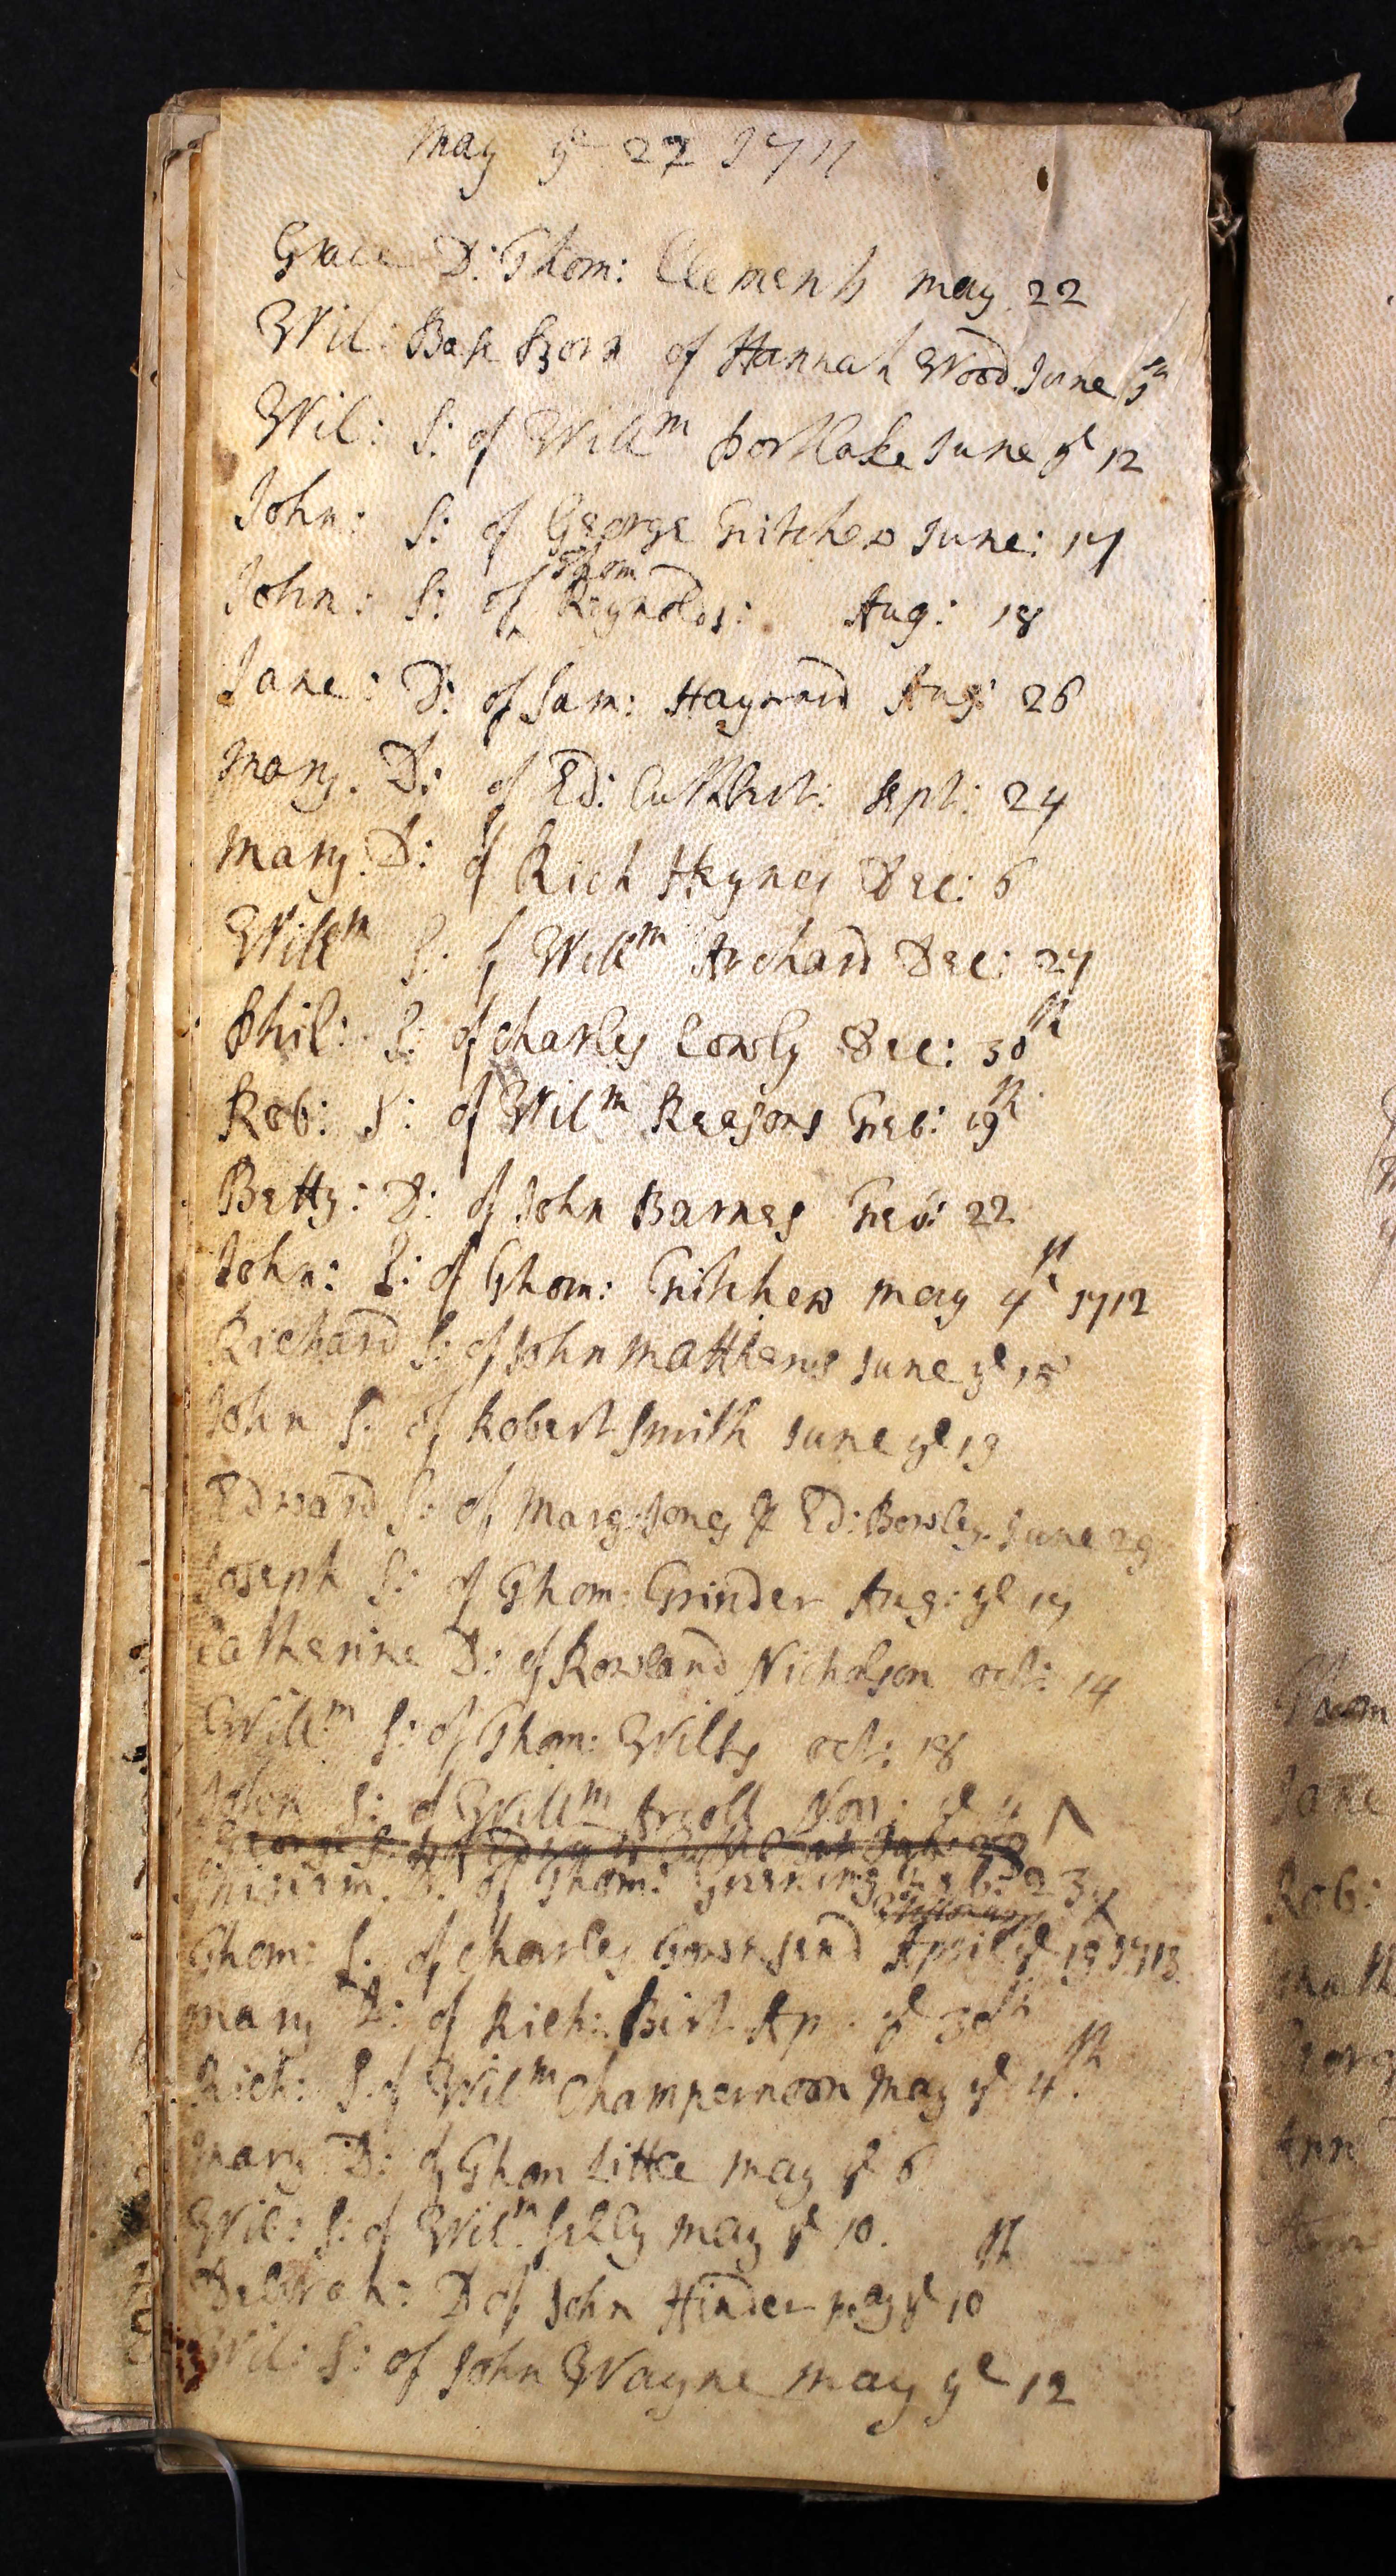 may ye 22 1711
Grace D: Thom: Clements may 22
Wil: Base Born of Hannah Wood June 5th
Wil: S: of Willm Portlake June ye 12
John: S: of George Fritcher June: 17
Thom
John: S: of Reynolds: Aug: 18
Jane: D: of Sam: Hayward Aug: 26
Mary. D: of Ed: Cuthbert: Sept: 24
Mary. D: of Rich Haynes Dec: 6
Willm S: of Willm Archard Dec: 27
Phil: S: of Charles Cowly Dec: 30th
Rob: S: of Wilm Reasons Feb: 19th
Betty: D: of John Barnes Feb: 22
John: S: of Thom: Fritcher may 4th 1712
Richard S: of John Matthews June ye 15
John S. of Robert Smith June ye 19
Edward S: of Marg: Jones & Ed: Bowley. June 29
Joseph S: of Thom: Grinder Aug: ye 17
Catherine D: of Rowland Nicholson oct: 14
Willm S: of Thom: Wilts oct: 18
John S: of Willm Arnoll Nov: ye 4
George S: of Edward Cuthbert
D: of Thom: Greening Feb: 23
Thom: S. of Charles Townsend April ye 19 1713
Mary D: of Rich: Birt Ap: ye 30th
Rich: S. of Wilm Champernoon May ye 4th
Mary D: of Thom Little may ye 6
Wil: S: of Wilm Silly may ye 10.
Deborah: D of John Hinder may ye 10th
Wil: S: of John Wayne may ye 12